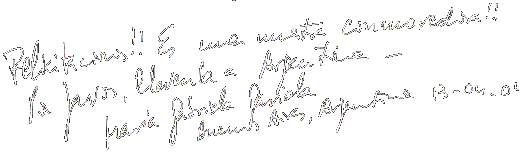 Felicitaciones!! Es una muestra conmovedora!!
Por favor, llevenla a Argentina —
María Gabriela
Buenos Aires, Argentina 13-04-04